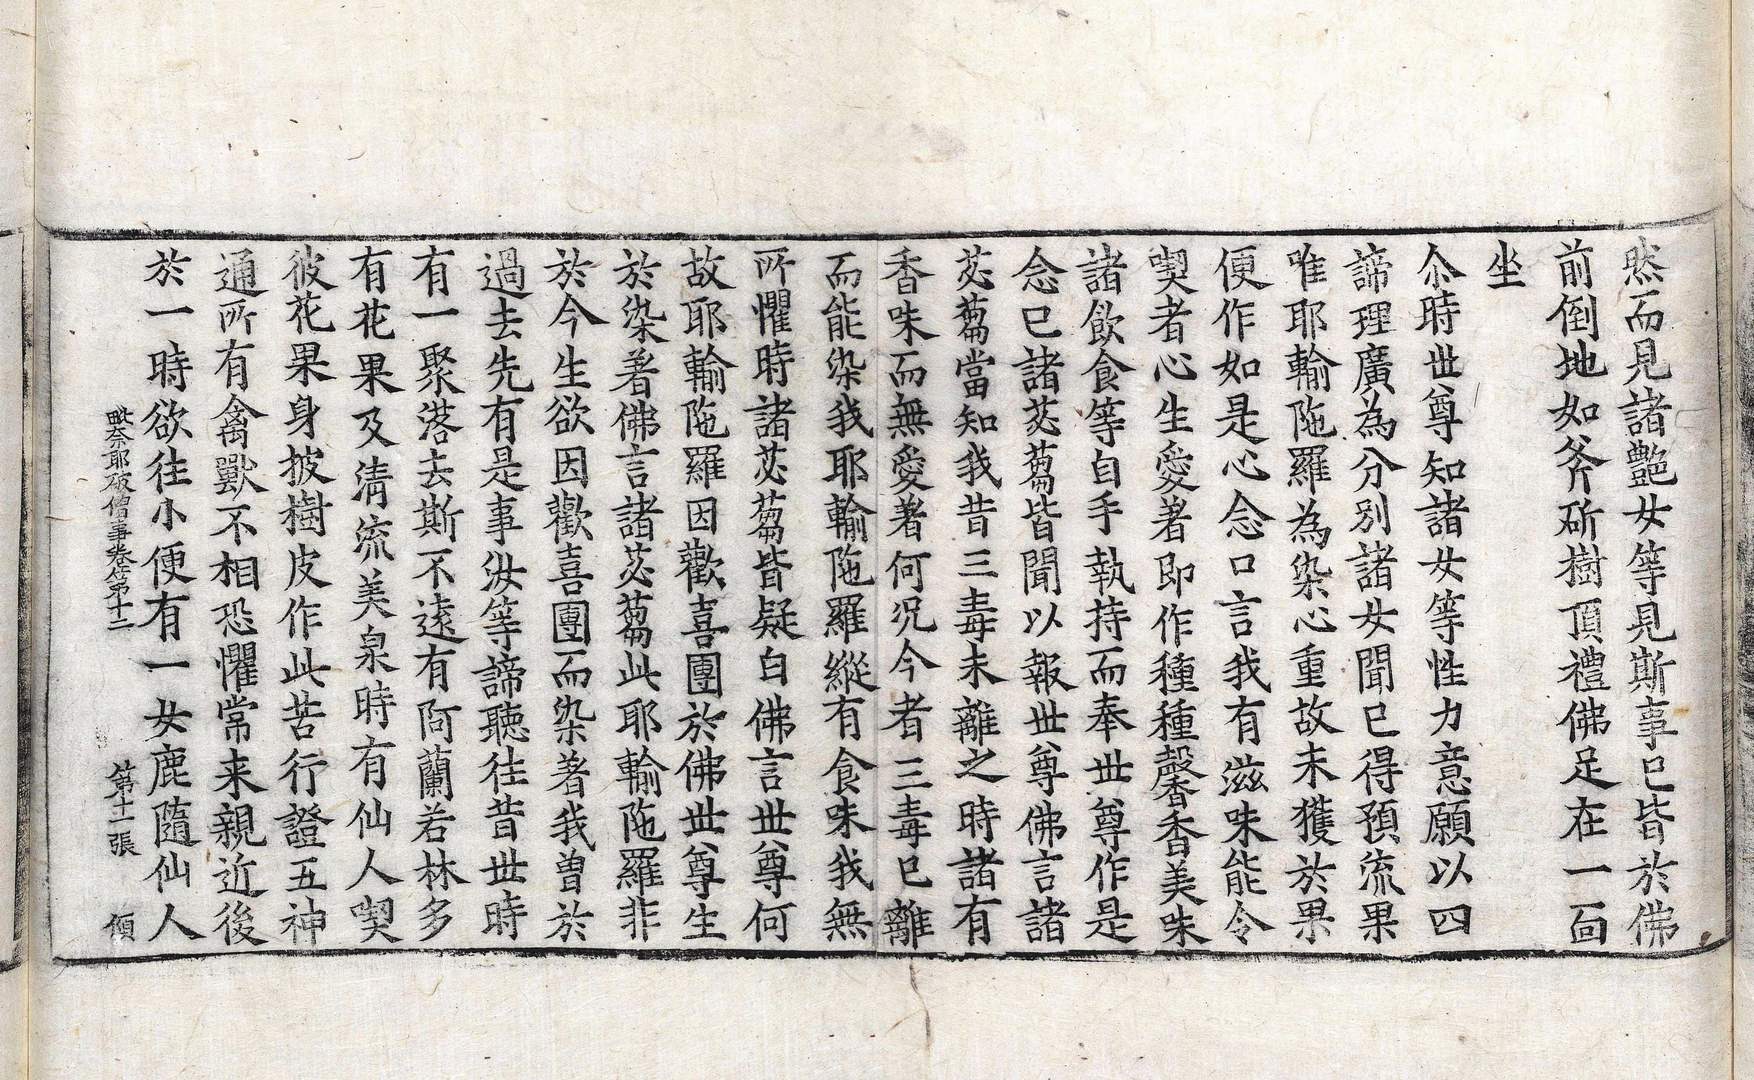 然而見諸艷女等見斯事已皆於佛
前倒地如斧斫樹頂禮佛足在一面
坐
尒時世尊知諸女等性力意願以四
諦理廣為分別諸女聞已得預流果
唯耶輸陁羅為染心重故未獲於果
便作如是心念口言我有滋味能令
喫者心生愛著即作種種馨香美味
諸飲食等自手執持而奉世尊作是
念已諸苾蒭皆聞以報世尊佛言諸
苾蒭當知我昔三毒未離之時諸有
香味而無愛著何況今者三毒已離
而能染我耶輸陁羅縱有食味我無
所懼時諸苾蒭皆疑白佛言世尊何
故耶輸陁羅因歡喜團於佛世尊生
於染著佛言諸苾蒭此耶輸陁羅非
於今生欲因歡喜團而染著我曾於
過去先有是事汝等諦聽往昔世時
有一聚落去斯不遠有阿蘭若林多
有花果及清流美泉時有仙人喫
彼花果身披樹皮作此苦行證五神
通所有禽獸不相恐懼常来親近後
於一時欲往小便有一女鹿隨仙人
毗奈耶破僧事卷第十二 第十一張 傾